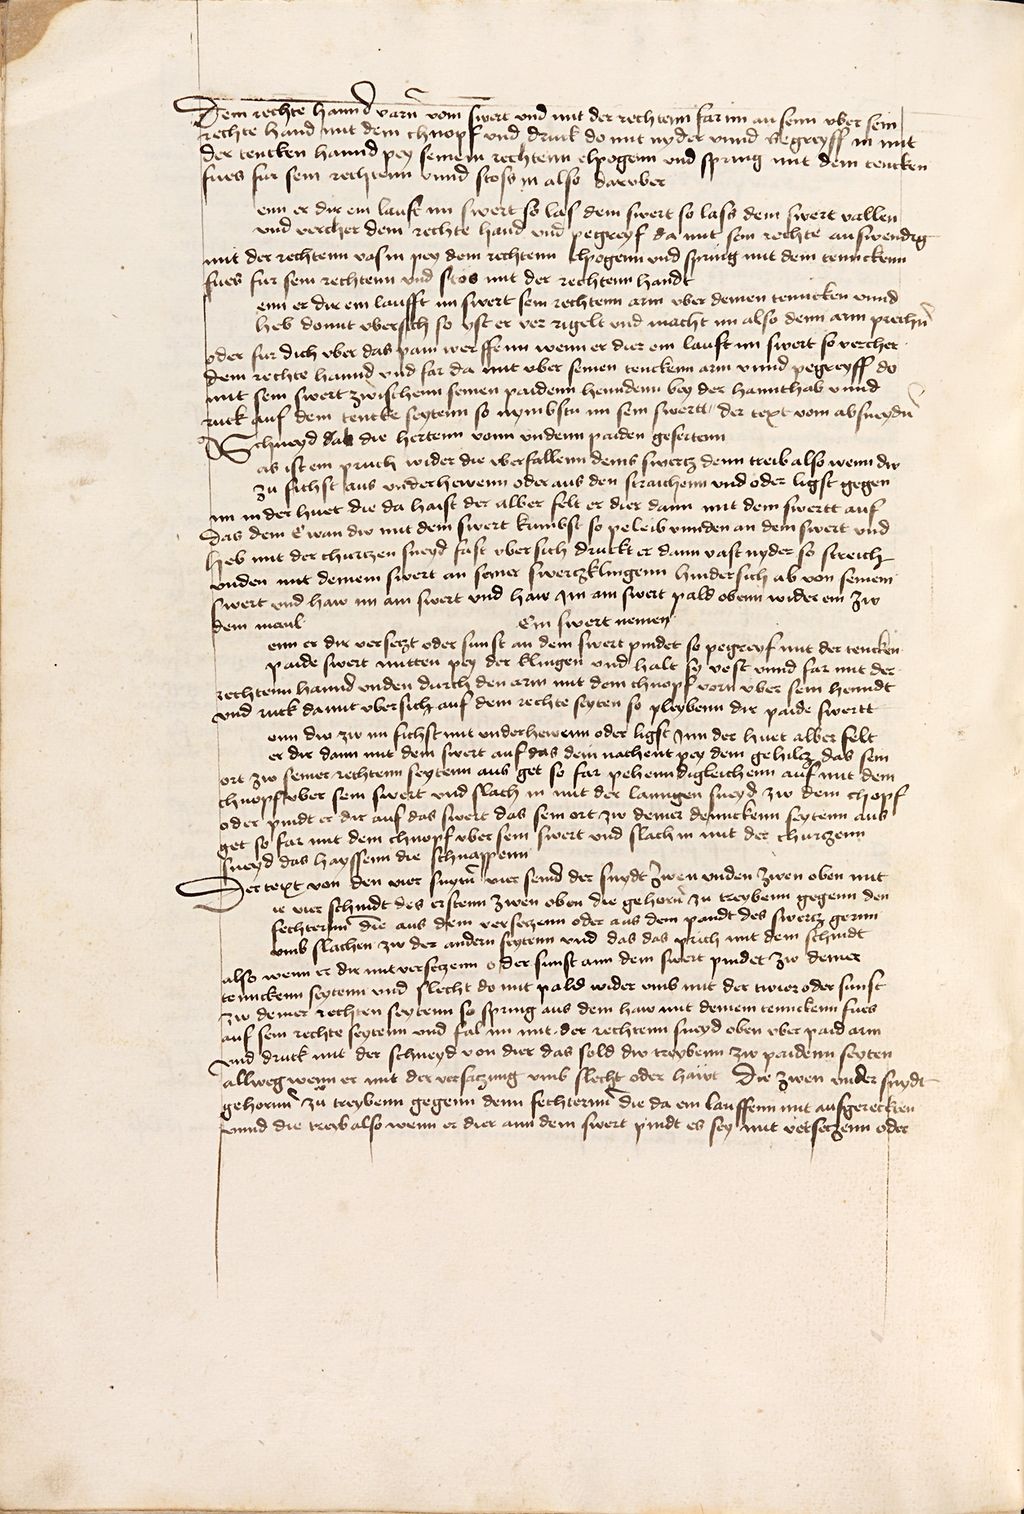 Dein rechte hannd varn vom swert und mit der rechtenn far im aussenn uber sein
rechte hand mit dem chnopf und druck do mit nyder unnd begreyff in mit
der tencken hannd pey seinem rechtenn elpogenn und spring mit dem tencken
fues fur sein rechtenn unnd stoss in also daruber
enn er dir ein lauft im swert so las dein swert so lass dein swert vallen
und vercher dein rechte hand und pegreyf da mit sein rechte auswendig
mit der rechtenn vas in pey dem rechtenn elpogenn und spring mit dem tenncken
fues fur sein rechtenn und stos mit der rechtenn handt
enn er dir ein laufft im swert sein rechtenn arm uber deinen tenncken unnd
heb domit ubersich so yst er ver rigelt und macht im also denn arm prechn
oder fur dich uber das pain werffenn wenn er dier ein lauft im swert so vercher
dein rechte hannd und far da mit uber seinen tenckenn arm unnd pegreyff do
mit sein swert zwischenn seinen paidenn henndenn bey der hannthab unnd
ruck auf dein tencke seytenn so nymbstu im sein swertt der text vom absneydn
Schneyd ab die hertenn vonn undenn paiden gefertenn
as ist ein pruch wider die uberfallenn deins swertz denn treib also wenn dw
zu fichst aus underhewenn oder aus den straichenn und oder ligst gegen
im in der huet die da haist der alber felt er dier dann mit dem swertt auf
das dein E wan dw mit dem swert kumbst so peleib unnden an dem swert und
heb mit der churtzen sneyd fast ubersich druckt er dann vast nyder so streich
unden mit deinem swert an seiner swertzklingenn hindersich ab von seinem
swert und haw im am swert und haw Im am swert pald obenn wider ein zw
dem maul
Ein swert nemen
enn er dir versetzt oder sunst an dem swert pindet so pegreyf mit der tencken
paide swert mitten pey der klingen und halt sy vest unnd far mit der
rechtenn hannd unden durch den arm mit dem chnopf vorn uber sein henndt
und ruck damit ubersich auf dein rechte seyten so pleybenn dir paide swertt
enn dw zw im fichst mit underhewenn oder ligst Im der huet alber felt
er dir dann mit dem swert auf das dein nachent pey dem gehiltz das sein
ort zw seiner rechtenn seytenn aus get so far pehenndigleichenn auf mit dem
chnopf uber sein swert und slach in mit der lanngen sneyd zw dem chopf
oder pindt er dir auf das swert das sein ort zw deiner denncken seytenn aus
get so far mit dem chnopf uber sein swert und slach in mit der churtzenn
sneyd das hayssenn die schnappenn
Der text von den vier snytn vier seind der snydt zwen unden zwen oben mit
ie vier schnidt des erstenn zwen oben die gehorn zu treybenn gegenn den
fechternn die aus dem versetzenn oder aus dem pandt des swertz gernn
umb slachen zw der andern seytenn und das das prich mit dem schnidt
also wenn er dir mit versetzenn oder sunst ann dem swert pindet zw deiner
tennckenn seytenn und slecht do mit pald wider umb mit der twier oder sunst
zw deiner rechten seytenn so spring aus dem haw mit deinem tennckenn fues
auf sein rechte seytenn und fal im mit der rechtenn sneyd oben uber paid arm
und druck mit der schneyd von dier das sold dw treybenn zw paidenn seyten
allweg wenn er mit der versatzung umb slecht oder hawt Die zwen under snydt
gehornn zw treybenn gegenn denn fechternn die da ein lauffenn mit aufgerecken
unnd die treib also wenn er dier ann dem swert pindt es sey mit versetzenn oder